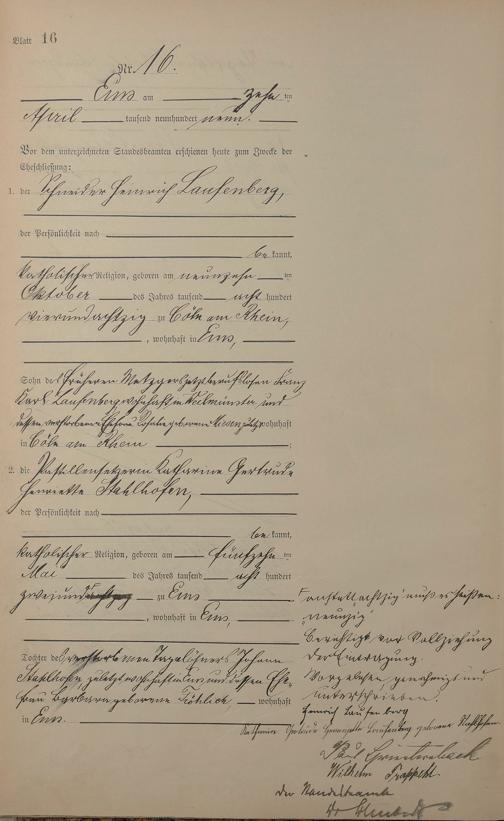 Blatt 16
Nr. 16.
Ems am zehn ten
April tausend neunhundert neun.
Vor dem unterzeichneten Standesbeamten erschienen heute zum Zwecke der
Eheschließung:
1. der Schneider Heinrich Laufenberg,
der Persönlichkeit nach
be kannt,
katholischer Religion, geboren am neunzehn ten
Oktober des Jahres tausend acht hundert
vierundachtzig zu Cöln am Rhein,
, wohnhaft in Ems,
Sohn des früheren Metzgers jetzt berufslosen Franz
Karl Laufenberg wohnhaft in und
dessen verstorbenen Ehefrau geborenen zuletzt wohnhaft
in Cöln am Rhein ;
2. die Pastillensetzerin Katharine Gertrude
Henriette Stahlhofen,
der Persönlichkeit nach
be kannt,
katholischer Religion, geboren am fünfzehn ten
Mai des Jahres tausend acht hundert
zweiund achtzig zu Ems
, wohnhaft in Ems,
Tochter des verstorbenen Tagelöhners Johann
Stahlhofen, zuletzt wohnhaft in Ems und dessen Ehe-
frau Barbara geborene Fröhlich wohnhaft
in Ems.
anstatt achtzig muß es heißen:
neunzig
Berichtigt vor Vollziehung
der Eintragung.
Vorgelesen, genehmigt und
unterschrieben.
Heinrich Laufenberg
Katharine Gertrude Henriette Laufenberg geborene Stahlhofen
Paul
Wilhelm
Der Standesbeamte
Dr.